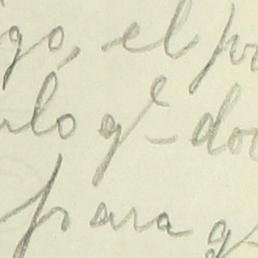 igo, el pr
ulo qe- doc
para q-